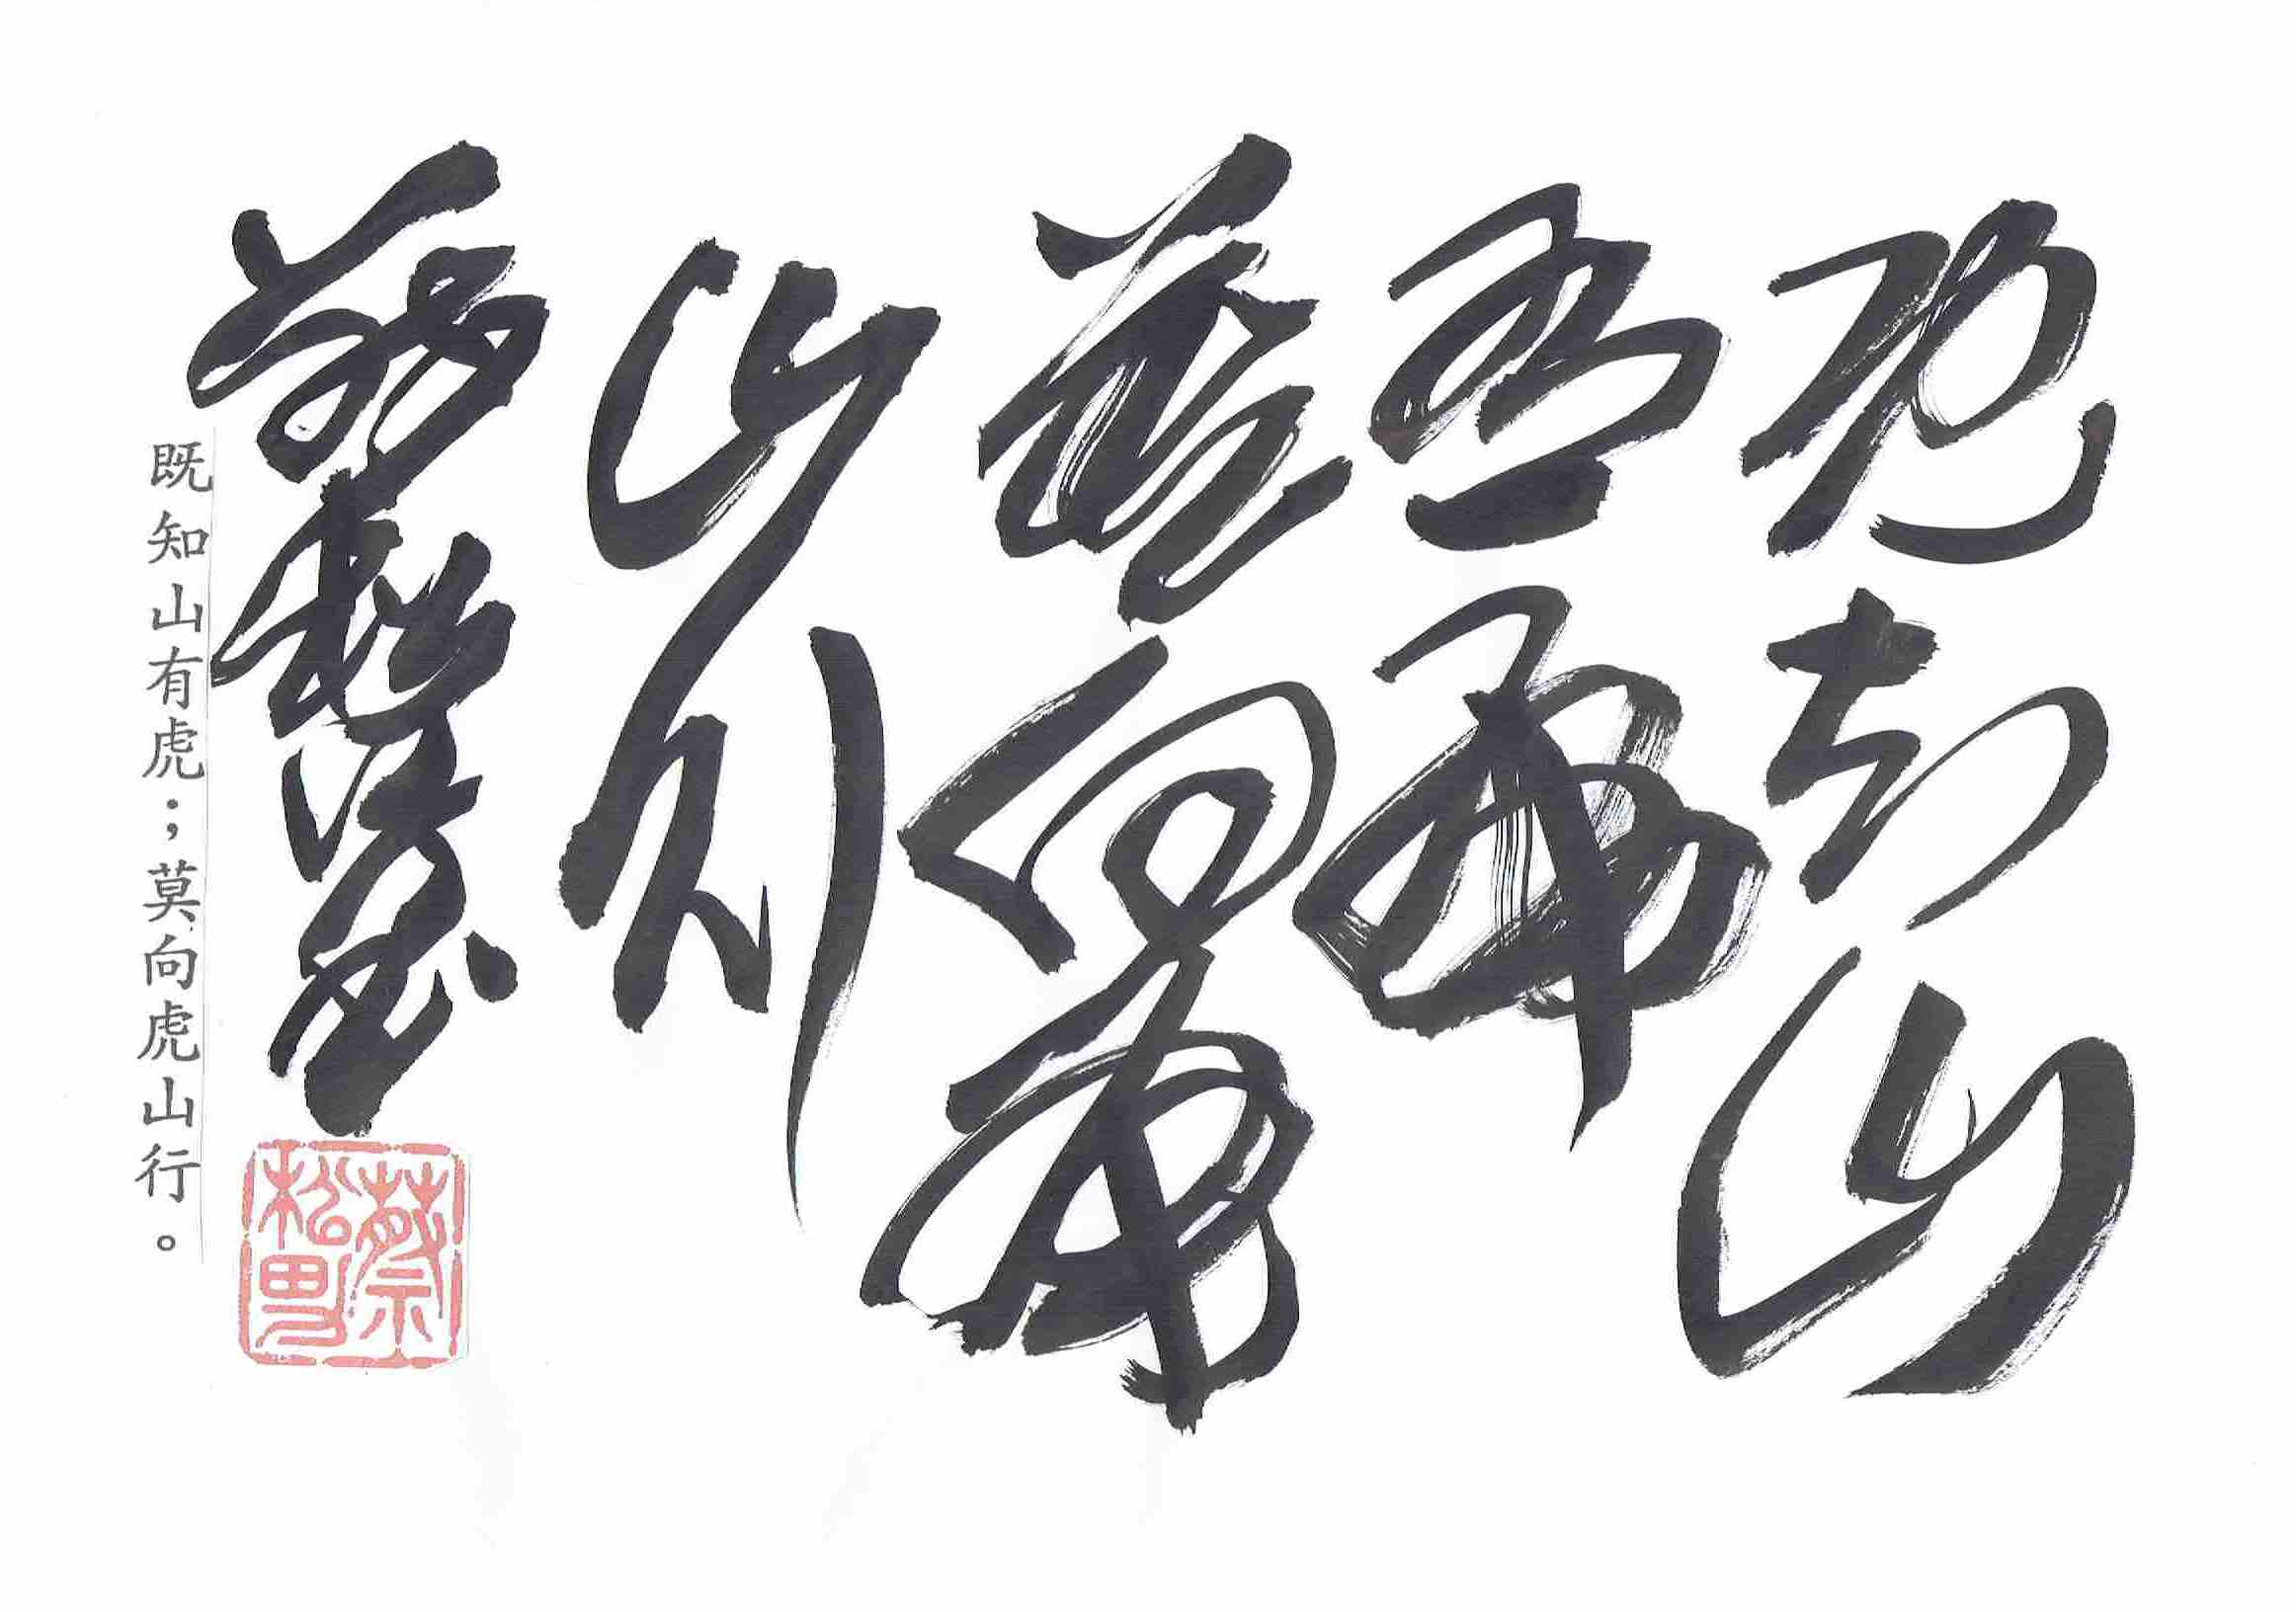 既知山
有虎
莫向虎
山行
蔡松男書
蔡
松男
既知山有虎；莫向虎山行。